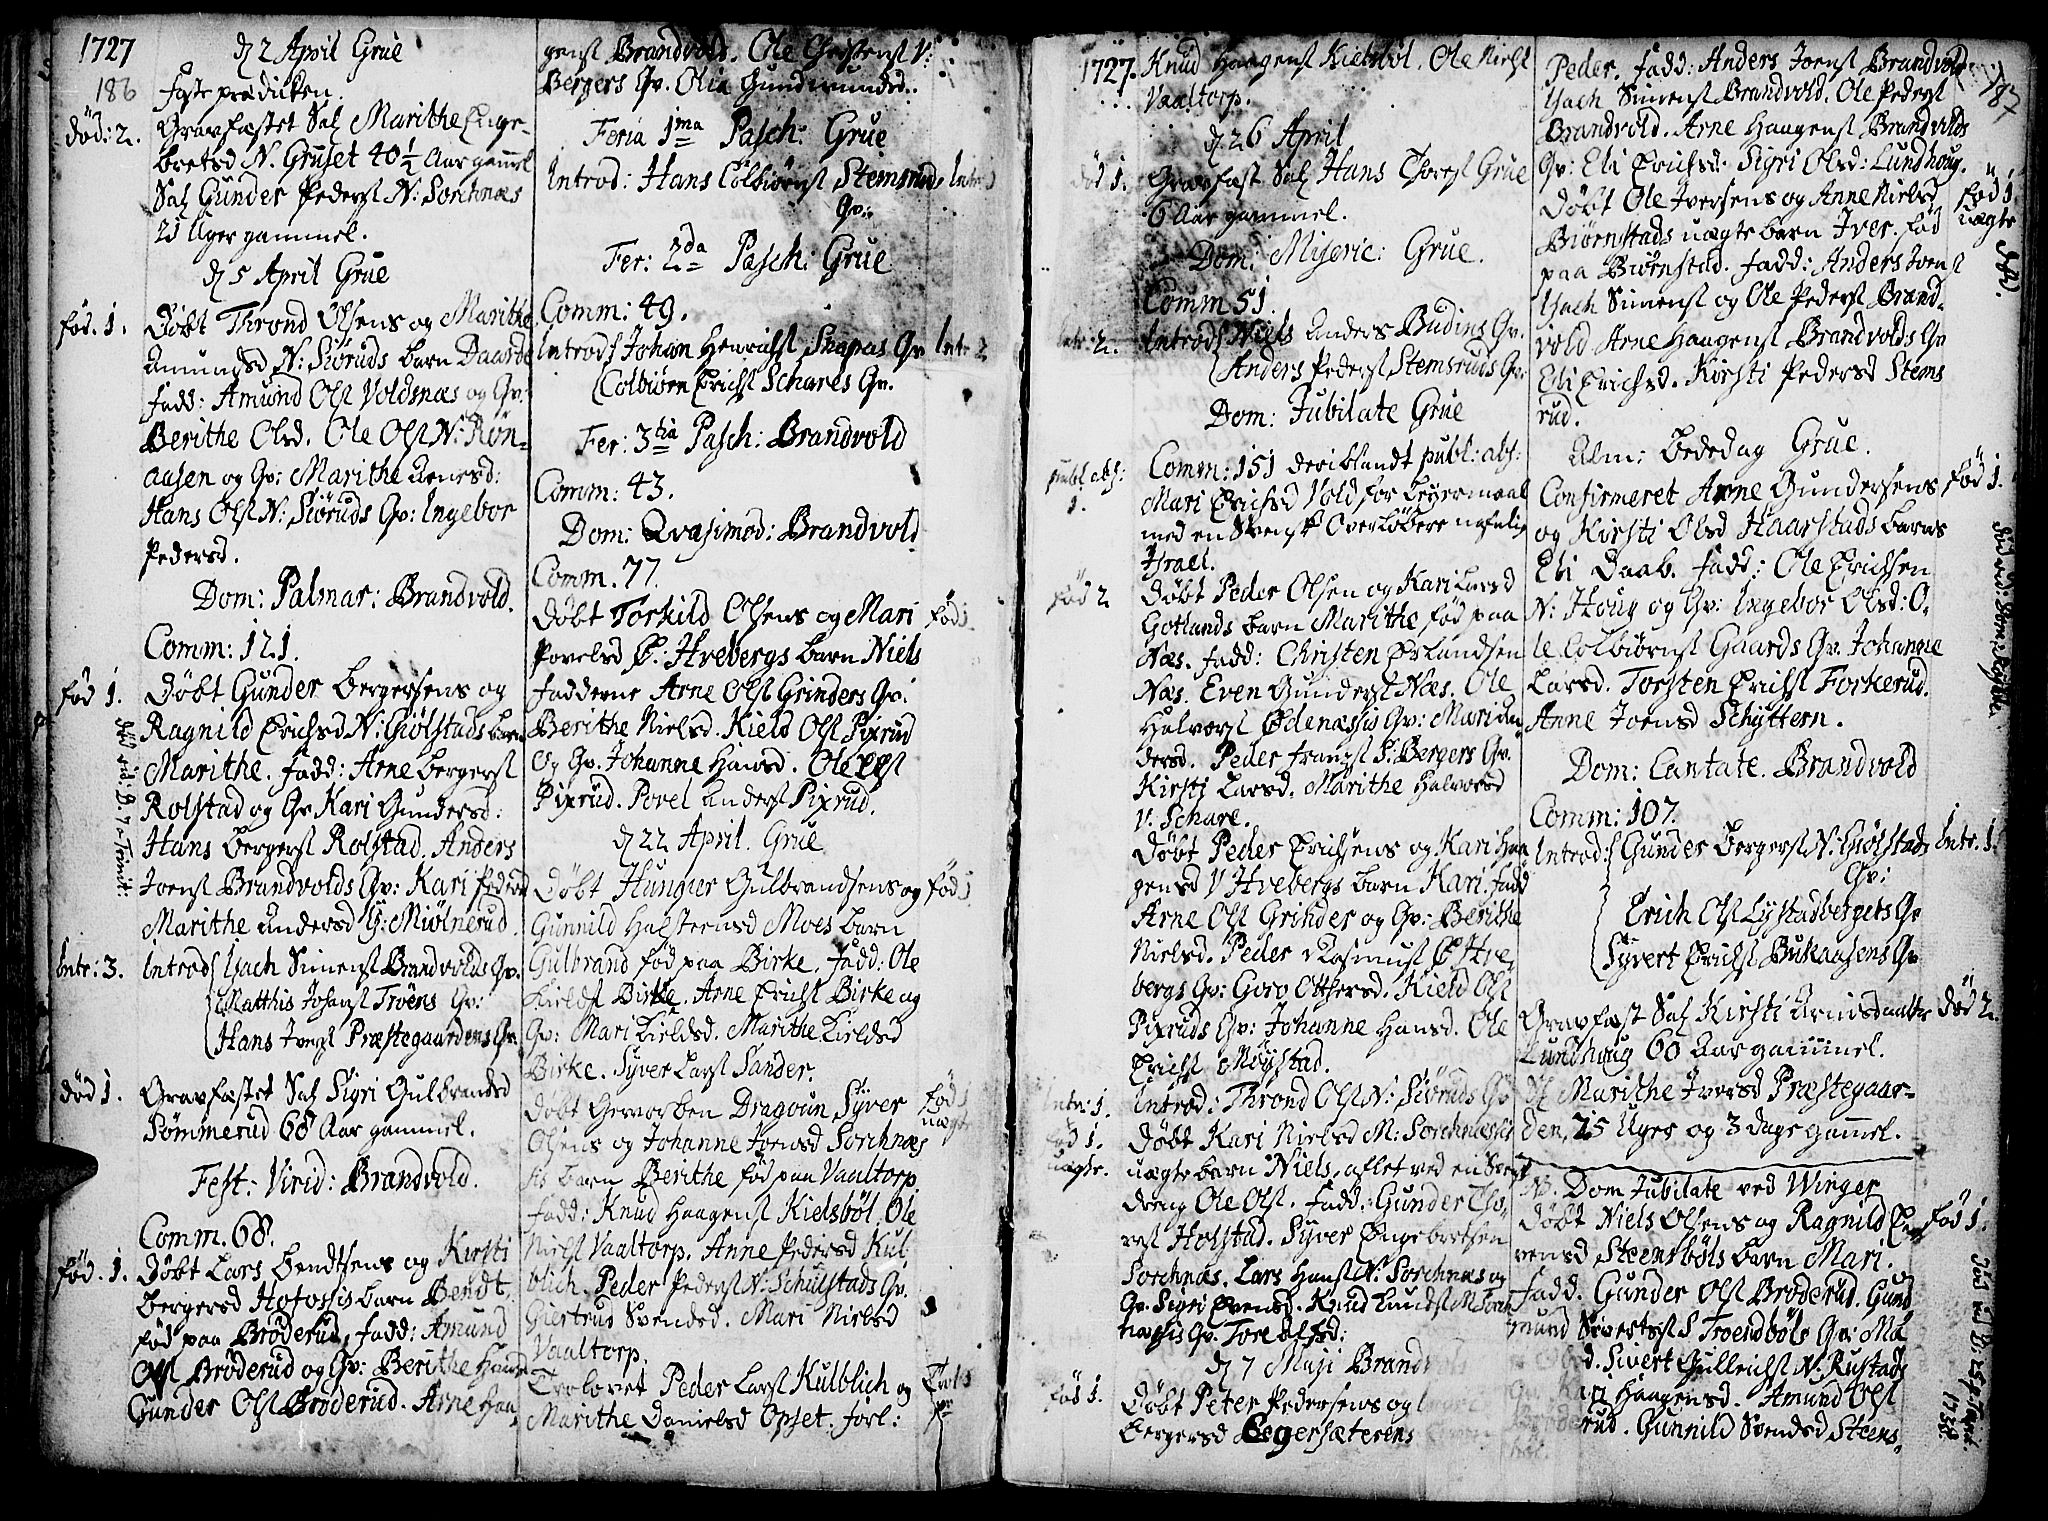 1727
186
d 2 April Grue
Faste prædicken.
død: 2. Gravfæstet Sal Marithe Enge-
bretsd N. Gruset 40 1/2 Aar gammel
Sal Gunder Peders N: Sorchnæs
21 Uger gammel.
d 5 April Grue
fød. 1. Døbt Thrond Olsens og Marithe
Amundsd N: Siøruds barn Daarde
fadd: Amund Ols Voldsnæs og Qv:
Berithe Olsd. Ole Ols N: Røn-
aasen og Qv: Marithe Arnesd:
Hans Ols N: Siøruds Qv: Ingebor
Pedersd.
Dom: Palmar: Brandvold.
Comm: 121.
fød 1. Døbt Gunder Bergersens og
Ragnild Erichsd N: Giølstads barn
Marithe. fadd: Arne Bergers
Rolstad og Qv Kari Gundersd:
Hans Bergers Rolstad. Anders
Joens Brandvolds Qv: Kari Pedersd
Marithe Andersd G: Miølnerud.
Intr: 3. Introd Isach Simens Brandvolds Qv.
Matthis Johans Trøens Qv:
Hans Ivers Præstegaardens Qv.
død 1. Gravfæstet Sal Sigri Gulbrandsd
Sømmerud 68 Aar gammel.
Fest: Virid: Brandvold.
Comm. 68.
fød. 1. Døbt Lars Bendtsens og Kirsti
Bergersd Hofossis barn Bendt.
fød paa Brøderud, fadd: Amund
Ols Brøderud og Qv: Berithe Hansd
Gunder Ols Brøderud. Arne Haa-
gens Brandvold. Ole Christens V:
Bergers Qv. Olia Gundmundsd.
Feria 1ma Pasch: Grue
Introd: Hans Colbiørns Stemsruds Intr 1
Qv:
Fer: 2da Pasch: Grue
Comm: 49.
Introd Johan Henrichs Skapas Qv Intr 2
Colbiørn Erichs Schares Qv.
Fer: 3tia Pasch: Brandvold
Comm: 43.
Dom: Qvasimod: Brandvold
Comm. 77.
Døbt Torkild Olsens og Mari fød 1
Povelsd Ø: Hvebergs barn Niels
fadderne Arne Ols Grinders Qv:
Berithe Nielsd. Kield Ols Pixrud
og Qv. Johanne Hansd. Ole Ols
Pixrud. Povel Anders Pixrud.
d 22 April. Grue
Døbt Hungier Gulbrandsens og fød 1
Gunnild Halsteensd Moes barn
Gulbrand fød paa Birke, fadd: Ole
Kields Birke. Arne Erichs Birke og
Qv: Mari Kieldsd. Marithe Kieldsd
Birke. Syver Lars Sander.
Døbt Hervorben Dragoun Syver fød 1
Olsens og Johanne Joensd Sorchnæs uægte
sis barn Berithe fød paa Vaaltorp
fadd: Knud Haagens Kielsbøl. Ole
Niels Vaaltorp. Anne Pedersd Kul
blich. Peder Peders N: Schulstads Qv.
Giertrud Svendsd. Mari Nielsd
Vaaltorp.
Trolovet Peder Lars Kulblich og Trol 1
Marithe Danielsd Opset. forl: pr
1727. Knud Haagens Kielsbøl. Ole Niels
Vaaltorp.
d 26 April
død 1. Gravfæst Sal Hans Thores Grue
6 Aar gammel.
Dom: Miseric: Grue.
Comm 51.
Intr: 2. Introd Niels Anders Budins Qv.
Anders Peders Stemsruds Qv:
Dom: Jubilate Grue
publ abs: Comm: 151 deriblandt publ: abs:
1. Mari Erichsd Vold for Leyermaal
med en Svensk Overløbere nafnlig
Israel.
fød 2 Døbt Peder Olsen og Kari Larsd
Gotlands barn Marithe fød paa
Næs. fadd: Christen Erlandsen
Næs. Even Gunders Næs. Ole
Halvors Ødenæssis Qv: Mari An
dersd. Peder Frans S: Bergers Qv.
Kirsti Larsd. Marithe Halvorsd
V. Schare.
Døbt Peder Erichsens og Kari Haa
gensd V Hvebergs barn Kari. fadd
Arne Ols Grinder og Qv: Berithe
Nielsd. Peder Rasmus Ø Hve
bergs Qv: Goro Ottersd. Kield Ols
Pixruds Qv: Johanne Hansd. Ole
Erichs Møystad.
Intr: 1. Introd: Thrond Ols N: Siøruds Qv
fød 1. Døbt Kari Nielsd M: Sorchnæssis
uægte. uægte barn Niels, aflet ved en Svensk
dreng Ole Ols. fadd: Gunder Tho-
res Holstad. Syver Engebretsen
Sorchnæs. Lars Hans N: Sorchnæs og
Qv. Sigri Evensd. Knud Lunds M Sorch
næssis Qv. Tore Olsd:
d 7 Maji Brand
fød 1. Døbt Peter Pedersens og
Bergersd Egersæterens
187
Peder. fadd: Anders Joens Brandvold
Isach Simens Brandvold. Ole Peders
Brandvold. Arne Haagens Brandvolds
Qv: Eli Erichsd. Sigri Olsd: Lundhoug.
Døbt Ole Iversens og Anne Nielsd fød 1.
Biørnstads uægte barn Iver. fød uægte
paa Biørnstad. fadd: Anders Joens
Isach Simens og Ole Peders Brand-
vold Arne Haagens Brandvolds Qv
Eli Erichsd. Kirsti Pedersd Stems
rud.
Alm: Bededag Grue.
Confirmeret Arne Gundersens fød 1.
og Kirsti Olsd Haarstads barns
Eli Daab. fadd: Ole Erichsen
N: Houg og Qv: Ingebor Olsd: O-
le Colbiørns Gaards Qv. Johanne
Larsd. Torsten Erichs Forkerud.
Anne Joensd Schyttern.
Dom: Cantate. Brandvold
Comm: 107.
Introd: Gunder Bergers N: Giølstads Intr. 1.
Qv:
Erich Ols Lystadbergets Qv
Syvert Erichs Bukaasens Qv
Gravfæst Sal Kirsti Arnisdaatter død 2.
Lundhoug 60 Aar gammel.
Marithe Iversd Præstegaar-
den, 25 Uger og 3 dags gammel.
NB. Dom Jubilate ved Winger
Døbt Niels Olsens og Ragnild E- fød 1.
vensd Steensbøls barn Mari.
fadd. Gunder Ols Brøderud. Gund
mund Siverts S Troendbøls Qv: Ma
Sivert Gulleichs N: Rustads
Haagensd. Amund Ols
rud. Gunnild Svendsd Steens-